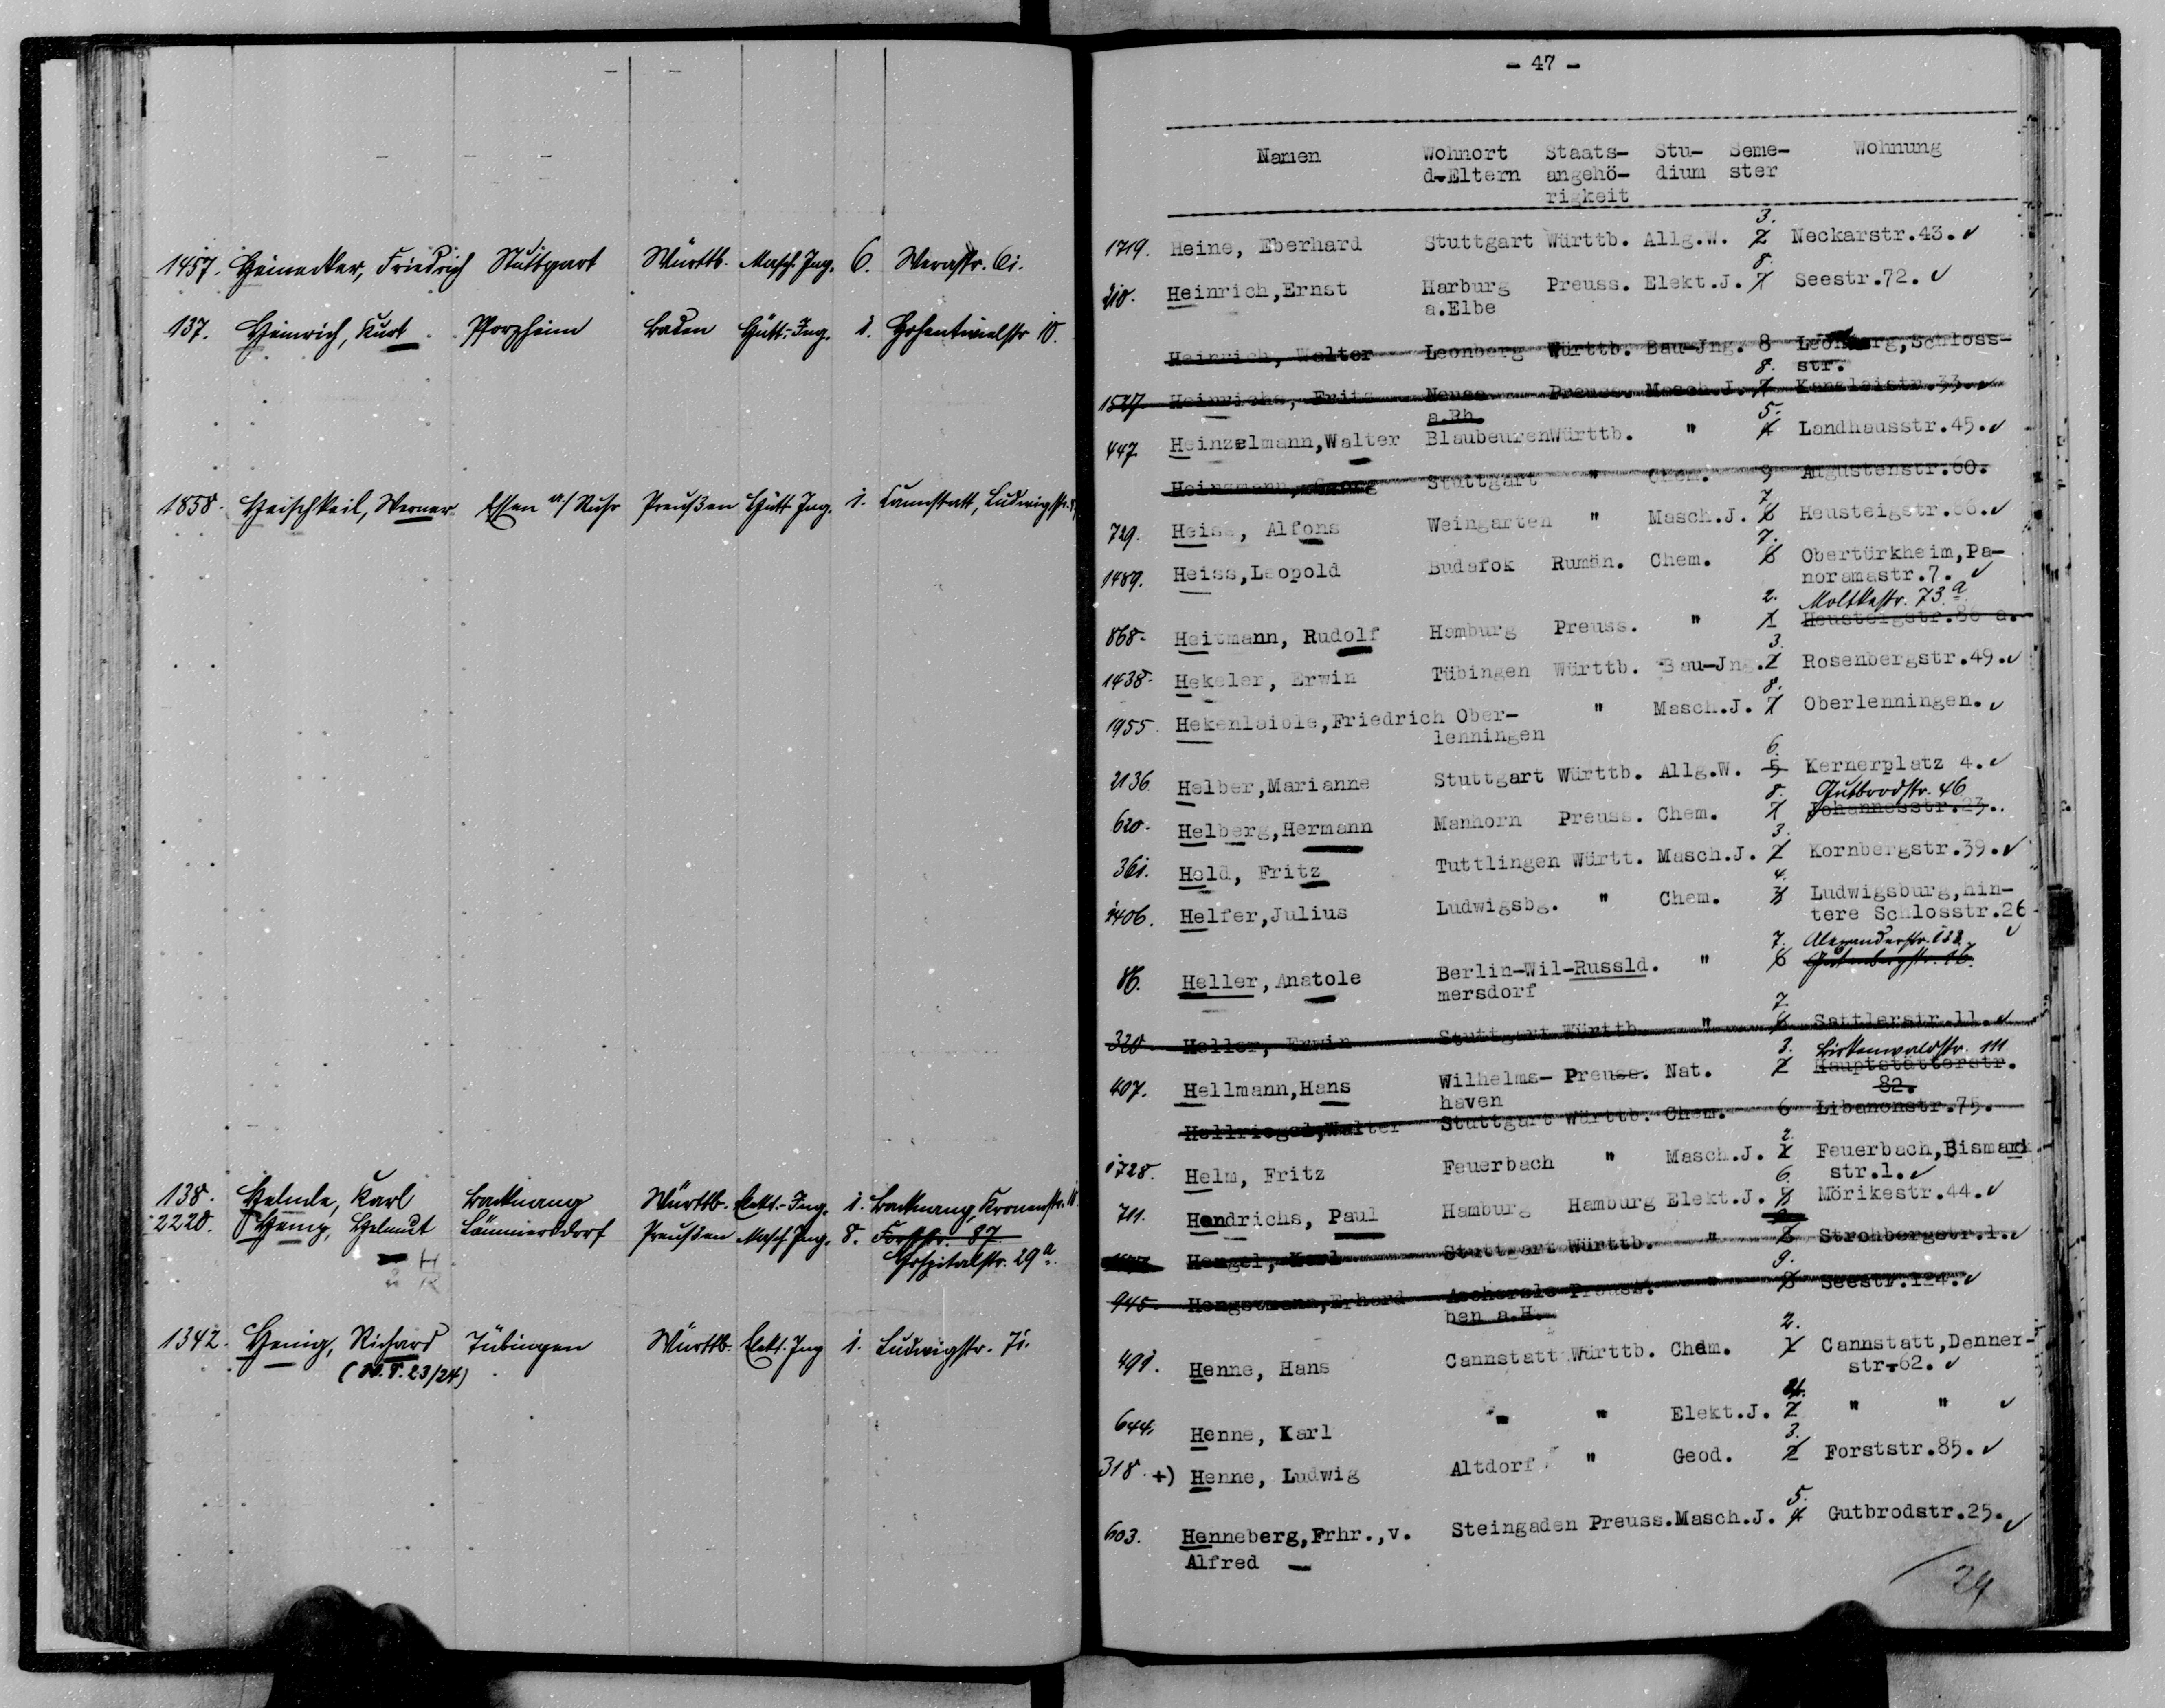 1457. Heinecker, Friedrich Stuttgart Württb. Masch. Ing. 6. Werastr. 61.
137. Heinrich, Kurt Pforzheim Baden Hütt.-Ing. 1. Hohentwielstr 10.
1858. Heischkeil, Werner Essen a/Ruhr Preußen Hütt. Ing. 1. Cannstatt, Ludwigstr.
138. Helmle, Karl Backnang Württb. Elekt.-Ing. 1. Backnang, Kronenstr.
2220. Hemp, Helmut Preußen Masch. Ing. 8. Forststr. 87.
H Hospitalstr. 29 a.
R
1342. Henig, Richard Tübingen Württb. Elekt. Ing 1. Ludwigstr. 71.
(W.S. 23/24)
- 47 -
Namen Wohnort Staats- Stu- Seme- Wohnung
d.Eltern angehö- dium ster
rigkeit
3.
1719. Heine, Eberhard Stuttgart Württb. Allg.W. 2 Neckarstr.43.
8.
210. Heinrich,Ernst Harburg Preuss. Elekt.J. 7 Seestr.72.
a.Elbe
Heinrich, Walter Leonberg Württb. Bau-Jng. 8 Leonberg,Schloss-
8. str.
1527. Heinrichs, Fritz Neuss Preuss. Masch.J. 7 Kanzleistr.33.
a.Rh. 5.
447 Heinzelmann,Walter Blaubeuren Württb. " 4 Landhausstr.45.
Heinzmann, Georg Stuttgart " Chem. 9 Augustenstr.60.
7.
729. Heiss, Alfons Weingarten " Masch.J. 6 Heusteigstr.66.
7.
1489. Heiss,Leopold Budafok Rumän. Chem. 6 Obertürkheim,Pa-
noramastr.7.
2. Moltkestr. 73 a
868. Heitmann, Rudolf Hamburg Preuss. " 1 Heusteigstr.86 a.
3.
1438. Hekeler, Erwin Tübingen Württb. Bau-Jng. 2 Rosenbergstr.49.
8.
1955. Hekenlaible,Friedrich Ober- " Masch.J. 7 Oberlenningen.
lenningen
6.
2136 Helber,Marianne Stuttgart Württb. Allg.W. 5 Kernerplatz 4.
8. Gutbrodstr. 46
620. Helberg,Hermann Manhorn Preuss. Chem. 7 Johannesstr.23.
3.
361. Held, Fritz Tuttlingen Württ. Masch.J. 2 Kornbergstr.39.
4.
1406. Helfer,Julius Ludwigsbg. " Chem. 3 Ludwigsburg,hin-
tere Schlosstr.26
7. Alexanderstr. 122.
86. Heller,Anatole Berlin-Wil- Russld. " 6 Gutenbergstr. 16.
mersdorf
7.
320 Heller, Erwin Stuttgart Württb. " 6 Sattlerstr.11.
3. Birkenwaldstr. 111
407. Hellmann,Hans Wilhelms- Preuss. Nat. 2 Hauptstätterstr.
haven 82.
Hellriegel,Walter Stuttgart Württb. Chem. 6 Libanonstr.75.
2.
1728. Helm, Fritz Feuerbach " Masch.J. 1 Feuerbach,Bismarck
6. str.1.
711. Hendrichs, Paul Hamburg Hamburg Elekt.J. 5 Mörikestr.44.
Hengel, Karl Stuttgart Württb. " 8 Strohbergstr.1.
9.
945. Hengstmann,Erhard Aschersle Preuss. " 8 Seestr.124.
ben a.H.
2.
491. Henne, Hans Cannstatt Württb. Chem. 1 Cannstatt,Denner-
str.62.
644. Henne, Karl " " Elekt.J. 2 " "
3.
318. +) Henne, Ludwig Altdorf " Geod. 2 Forststr.85.
5.
603. Henneberg,Frhr.,v. Steingaden Preuss. Masch.J. 4 Gutbrodstr.25.
Alfred
29